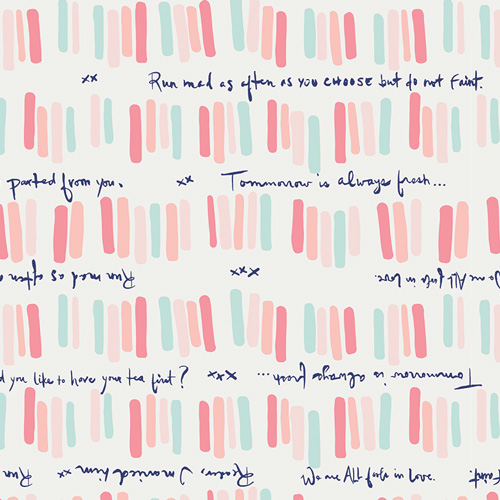 xx Run mad as often as you CHOOSE but do not Faint.
parted from you. xx Tommorrow is always fresh...
Run mad as often xxx We are All fools in Love.
d you like to have your tea first? xxx Tommorrow is always fresh...
Run Reader, I married him xx We are All fools in Love. Faint.